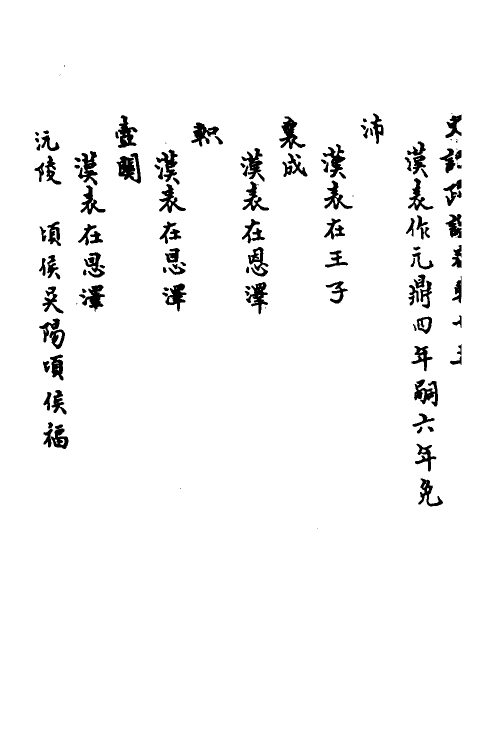 史記
漢表作元鼎四年嗣六年免
沛
漢表在王子
襄成
漢表在恩澤
軹
漢表在恩澤
壺關
漢表在恩澤
沅陵　頃侯吳陽頃侯福